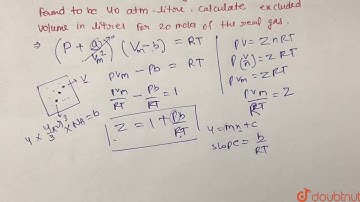 found to be 40 atm. litre. Calculate excluded
volume in litres for 20 mols of the real gas.
⇒ (P + a/Vm²) (Vm - b) = RT
PVm - Pb = RT
PVm/RT - Pb/RT = 1
Z = 1 + Pb/RT
V
4 × 4/3 πr³ × NA = b
PV = ZnRT
P(V/n) = ZRT
PVm = ZRT
PVm/RT = Z
y = mx + c
slope = b/RT
doubtnut